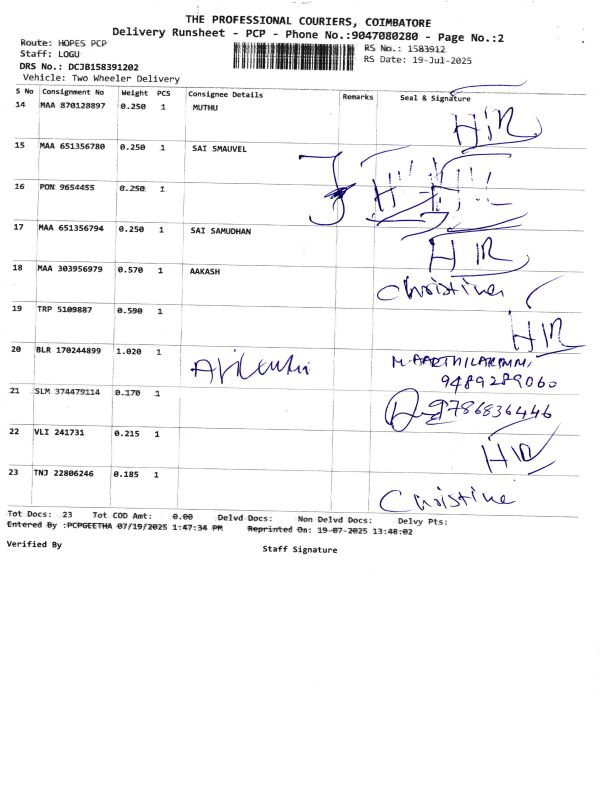 THE PROFESSIONAL COURIERS, COIMBATORE
Delivery Runsheet - PCP - Phone No.:9047080280 - Page No.:2
Route: HOPES PCP
Staff: LOGU
RS No.: 1583912
DRS No.: DCJB158391202
RS Date: 19-Jul-2025
Vehicle: Two Wheeler Delivery
S No Consignment No Weight PCS Consignee Details Remarks Seal & Signature
14 MAA 870128897 0.250 1 MUTHU HIR
15 MAA 651356780 0.250 1 SAI SMAUVEL
16 PON 9654455 0.250 1
17 MAA 651356794 0.250 1 SAI SAMUDHAN HIR
18 MAA 303956979 0.570 1 AAKASH Christine
19 TRP 5109887 0.590 1 HIR
20 BLR 170244899 1.020 1 9489289060
21 SLM 374479114 0.170 1 9786836446
22 VLI 241731 0.215 1 HIR
23 TNJ 22806246 0.185 1 Christine
Tot Docs: 23 Tot COD Amt: 0.00 Delvd Docs: Non Delvd Docs: Delvy Pts:
Entered By :PCPGEETHA 07/19/2025 1:47:34 PM Reprinted On: 19-07-2025 13:48:02
Verified By
Staff Signature